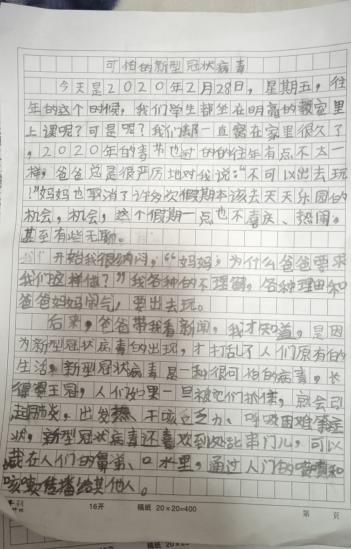 可怕的新型冠状病毒
今天是2020年2月28日，星期五，往
年的这个时候，我们学生都坐在明亮的教室里
上课呢？可是呢？我们却一直窝在家里很久了
，2020年的春节也过的的往年有点不太一
样，爸爸总是很严厉地对我说：“不可以出去玩
！”妈妈也取消了许多次假期本该去天天乐园的
机会，机会，这个假期一点也不喜庆、热闹。
甚至有些无聊。
开始我很纳闷，“妈妈，为什么爸爸要求
我们这样做？”我各种的不理解，各种理由和
爸爸妈妈闹气，要出去玩。
后来，爸爸带我看新闻，我才知道，是因
为新型冠状病毒的出现，才打乱了人们原有的
生活，新型冠状病毒是一种很可怕的病毒，长
得像王冠，人们如果一旦被它们抓住，就会引
起肺炎，出发热、干咳、乏力、呼吸困难等症
状，新型冠状病毒还喜欢到处串门儿，可以
藏在人们的鼻涕、口水里，通过人们的喷嚏和
咳嗽传播给其他人。
16开 稿纸 20×20=400 第 页
16开 稿纸